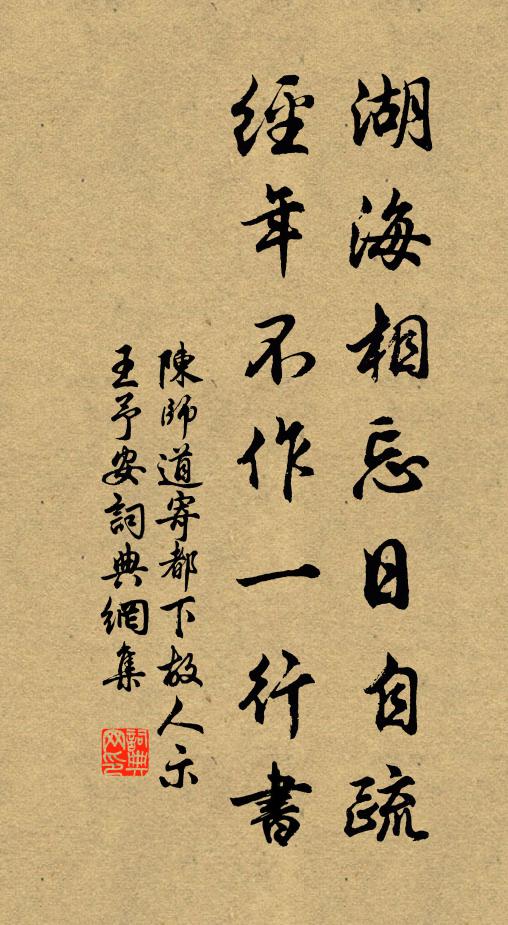 湖海相忘日自疏
經年不作一行書
陳師道寄都下故人示
王予安詞典網集
詞典網印